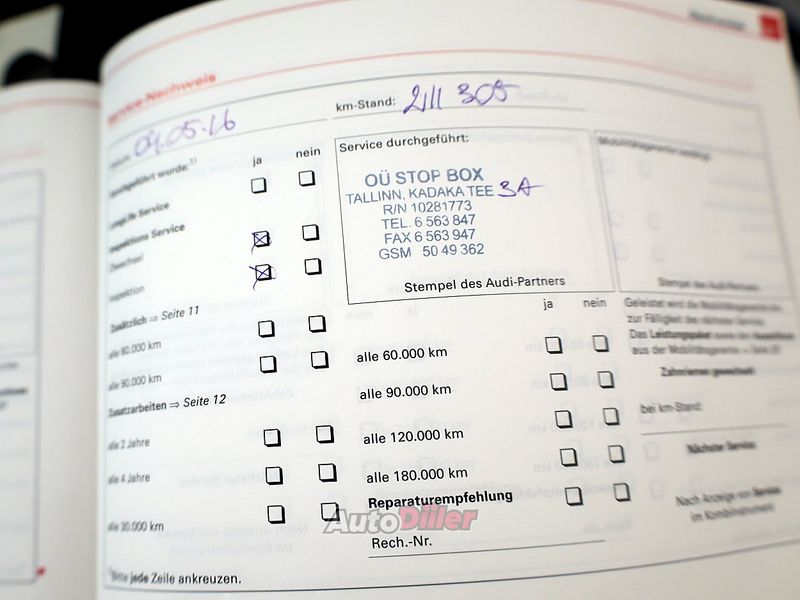 Service-Nachweis
09.05.16
km-Stand: 211 305
durchgeführt wurde:¹⁾
ja nein
Longlife Service
Inspektions Service
Ölwechsel
Inspektion
Zusätzlich ⇒ Seite 11
alle 60.000 km
alle 90.000 km
Zusatzarbeiten ⇒ Seite 12
alle 2 Jahre
alle 4 Jahre
alle 30.000 km
¹⁾Bitte jede Zeile ankreuzen.
Service durchgeführt:
OÜ STOP BOX
TALLINN, KADAKA TEE 3A
R/N 10281773
TEL. 6 563 847
FAX 6 563 947
GSM 50 49 362
Stempel des Audi-Partners
ja nein
alle 60.000 km
alle 90.000 km
alle 120.000 km
alle 180.000 km
Reparaturempfehlung
AutoDiiler
Rech.-Nr.
Stempel des Audi-Partners
Geleistet wird die Mobilitätsgarantie bis
zur Fälligkeit des nächsten Service.
Das Leistungspaket
aus der Mobilitätsgarantie
Zahnriemen gewechselt:
bei km-Stand:
Nächster Service
Nach Anzeige von Service
im Kombiinstrument